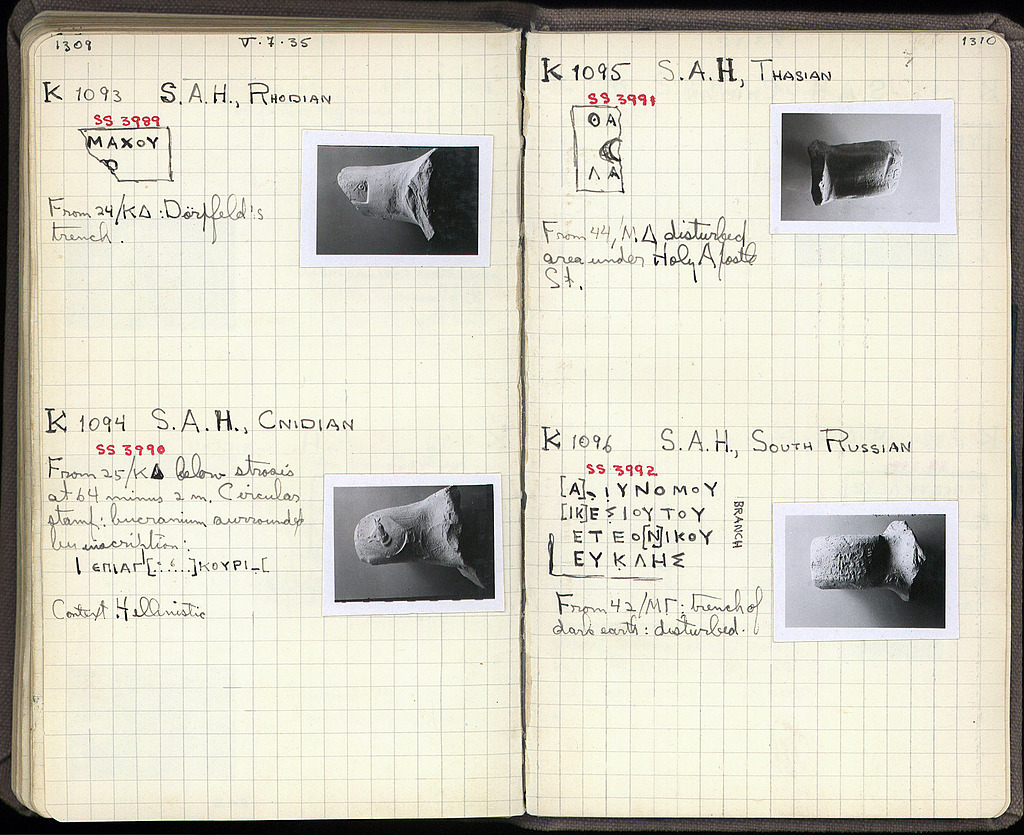 1309
V·7·35
K 1093 S.A.H., RHODIAN
SS 3989
ΜΑΧΟΥ
From 24/ΚΔ : Dörpfeld's
trench.
K 1094 S.A.H., CNIDIAN
SS 3990
From 25/ΚΔ below strosis
at 64 minus 2 m. Circular
stamp: bucranium surrounded
by inscription:
ΕΠΙΑΓ[:..:..]ΚΟΥΡΙ_[
Context Hellenistic
1310
K 1095 S.A.H, THASIAN
SS 3991
ΘΑ
ΛΑ
From 44/ΜΔ disturbed
area under Holy Apostle
St.
K 1096 S.A.H., SOUTH RUSSIAN
SS 3992
[Α]. ΙΥΝΟΜΟΥ
[ΙΚ]ΕΣΙΟΥΤΟΥ
ΕΤΕΟ[Ν]ΙΚΟΥ
ΕΥΚΛΗΣ
BRANCH
From 42/ΜΓ : trench of
dark earth : disturbed.